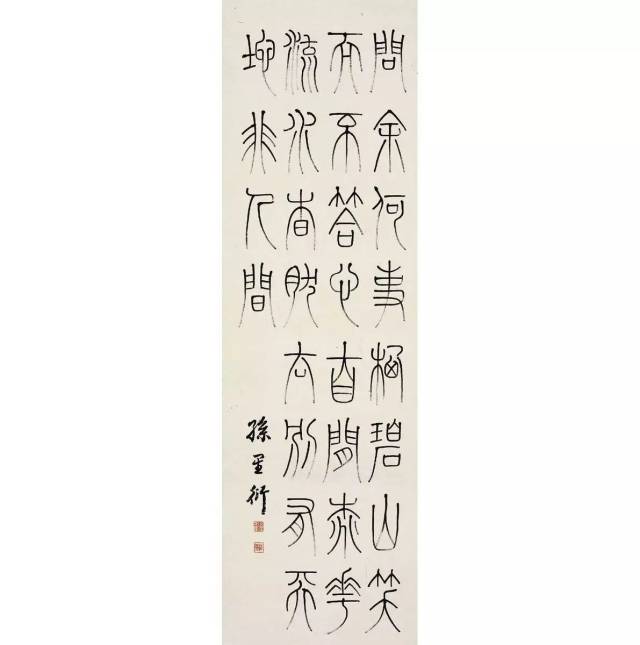 問余何事栖碧山笑
而不答心自閒桃花
流水杳然去別有天
地非人間
孫星衍